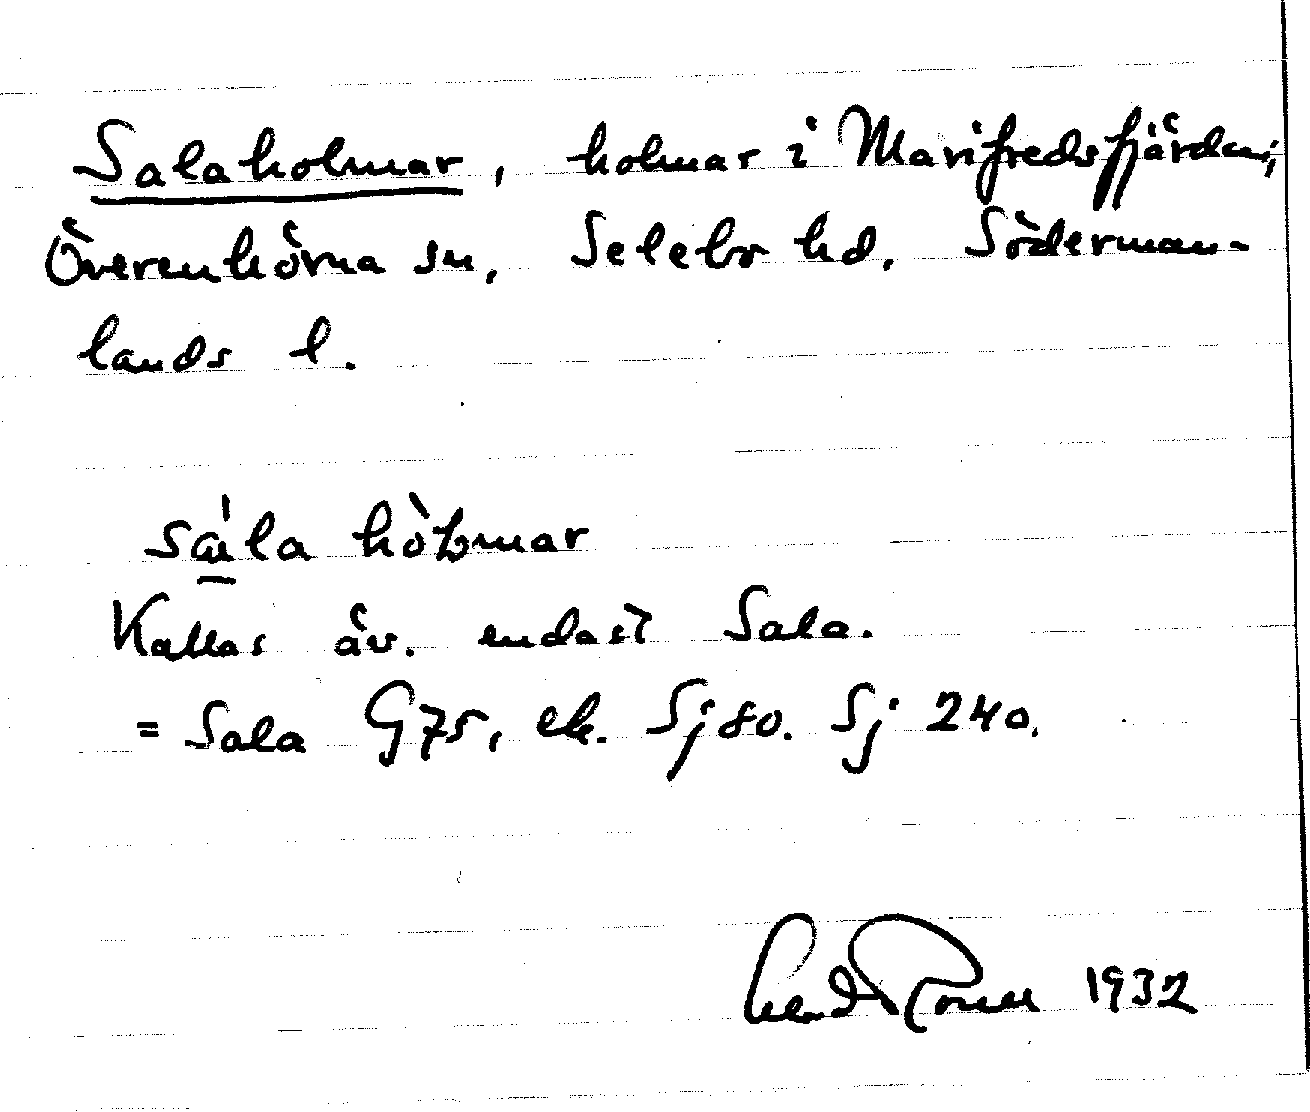 Salaholmar, holmar i Marifredsfjärden;
Överenhörna sn, Selebo hd. Söderman-
lands l.
sá̱la hòlmar
Kallas äv. endast Sala.
= Sala G75, ek. Sj 80. Sj 240.
1932